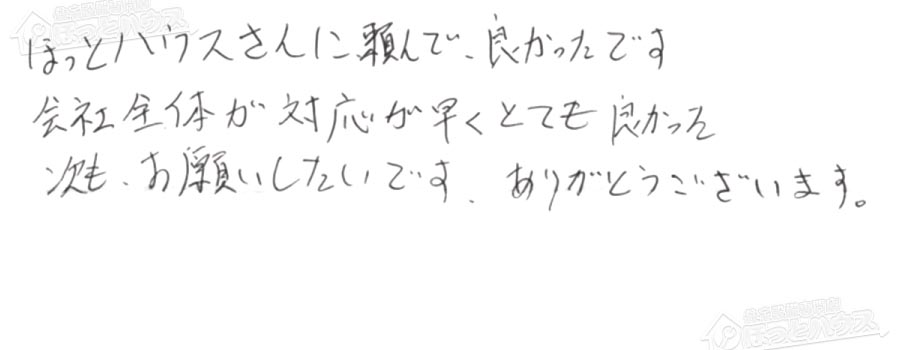 ほっとハウス
ほっとハウスさんに頼んで、良かったです
会社全体が対応が早くとても良かった
次も、お願いしたいです、ありがとうございます。
ほっとハウス